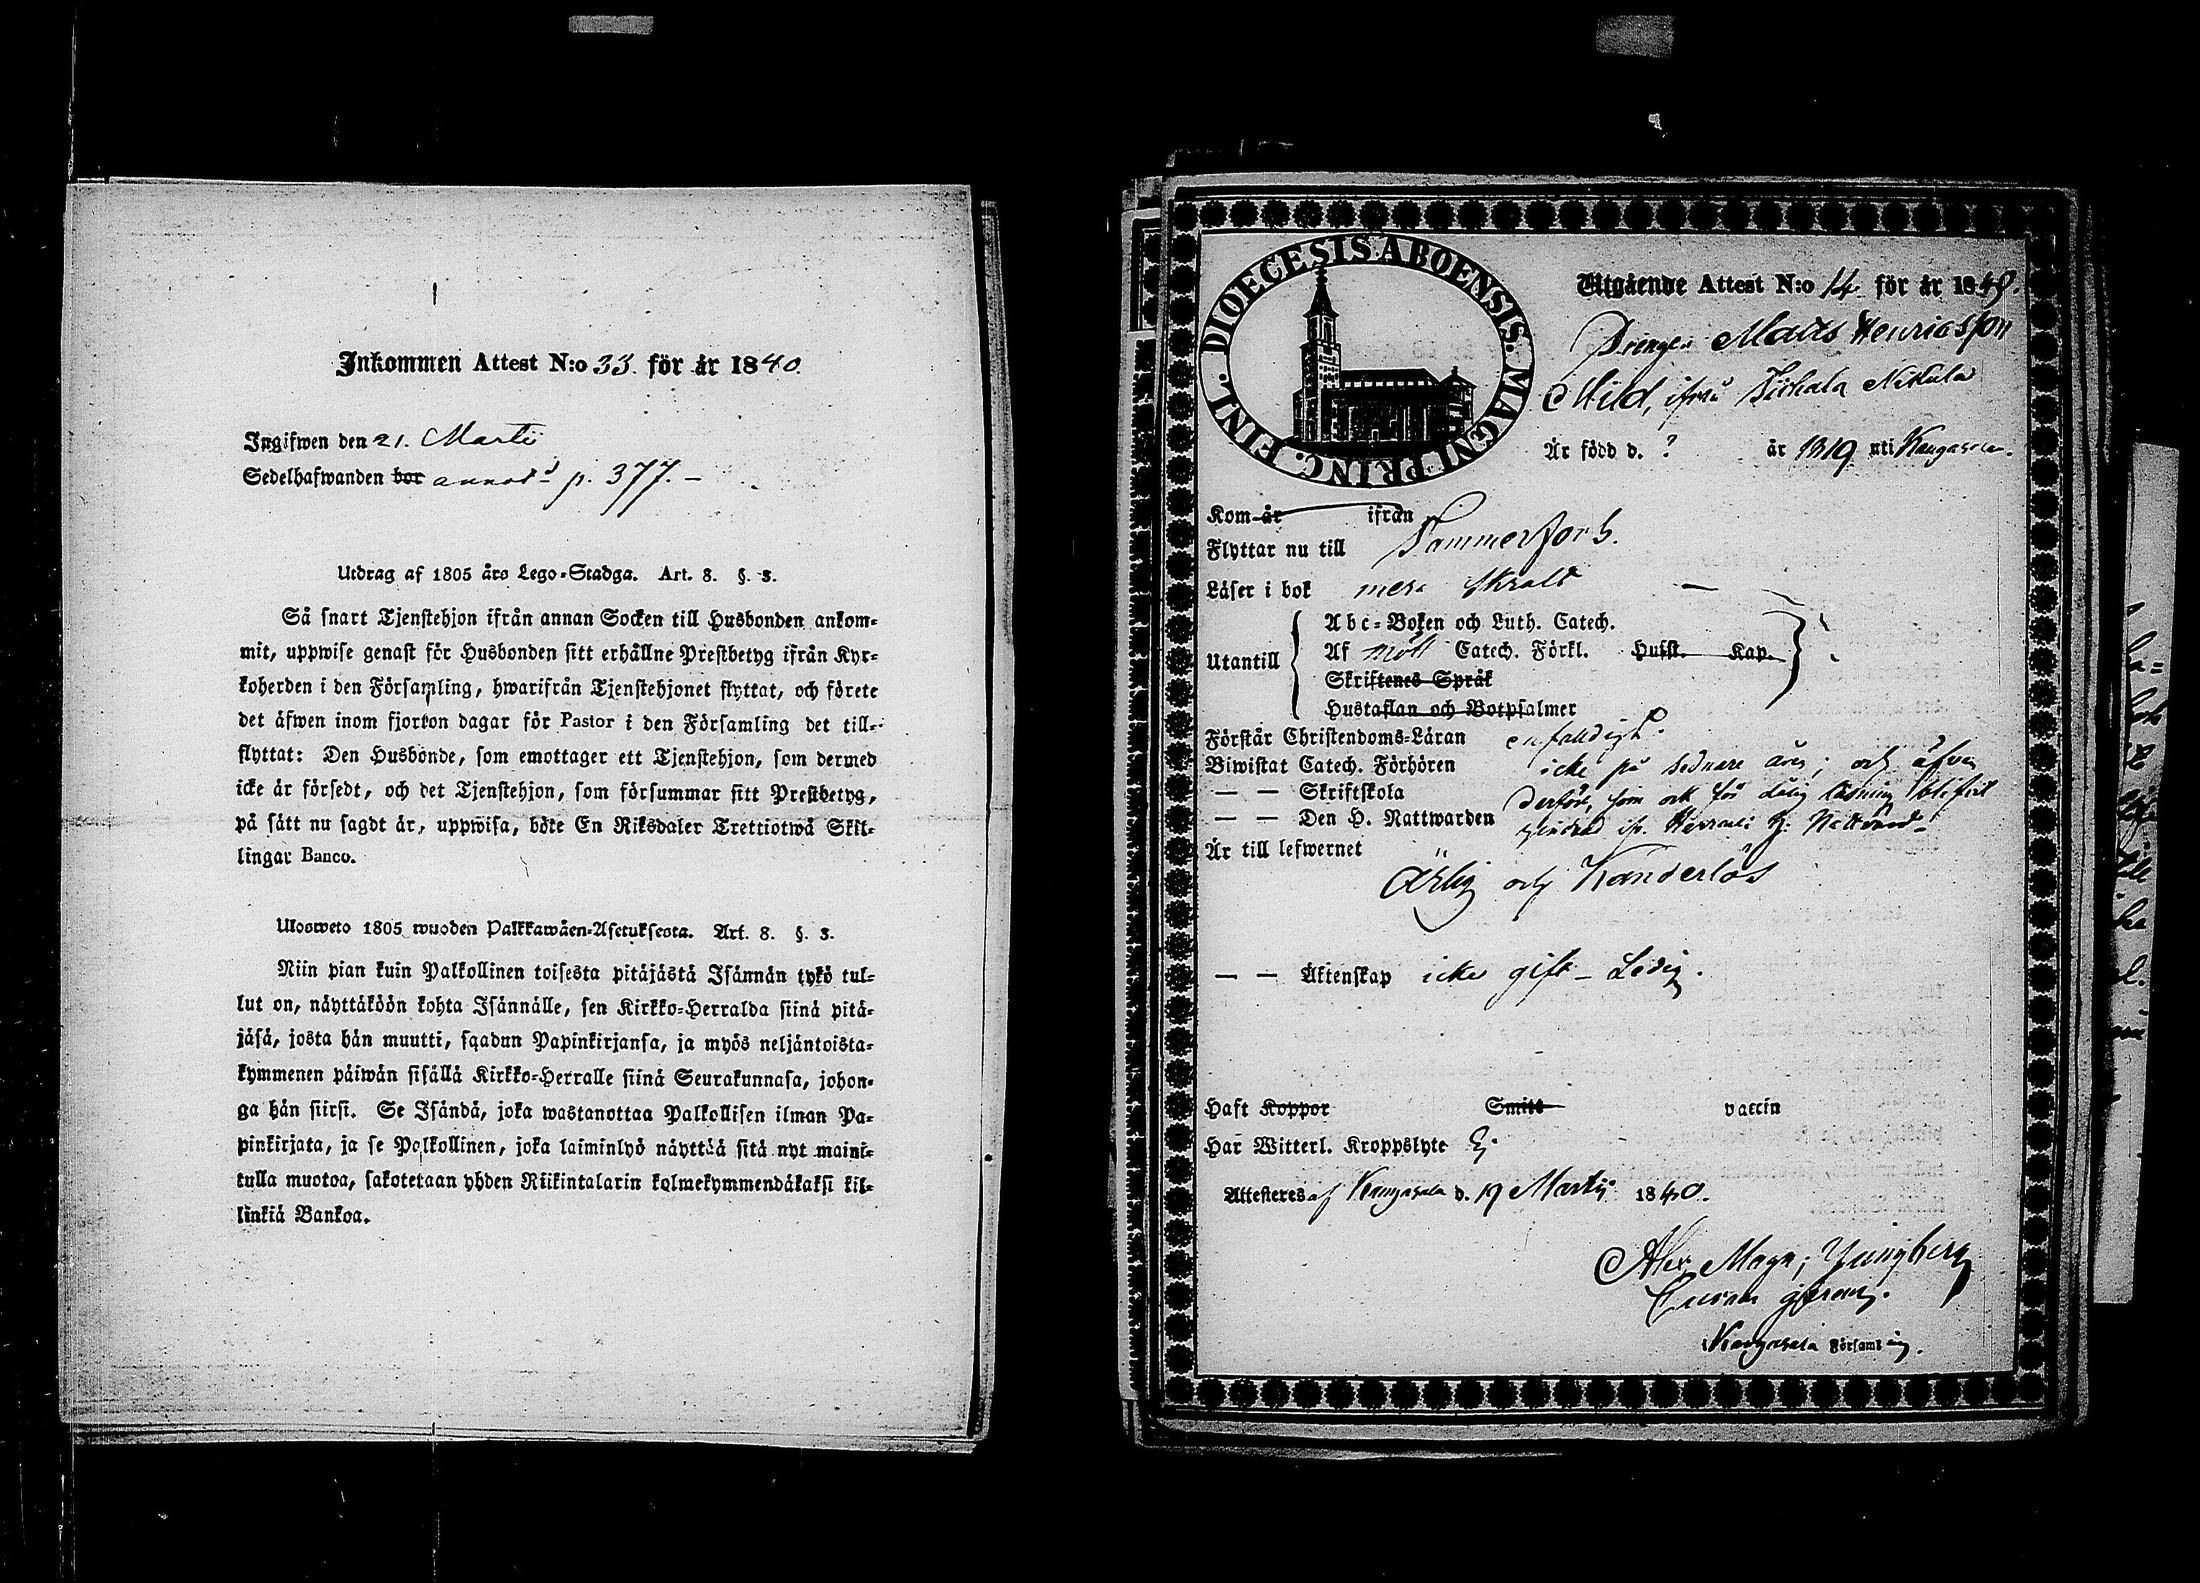 Inkommen Attest N:o 33. för år 1840.
Ingifwen den 21. Martii
Sedelhafwanden bor annot. p. 377. –
Utdrag af 1805 års Lego-Stadga. Art. 8. §. 3.
Så snart Tjenstehjon ifrån annan Socken till Husbonden ankom-
mit, uppwise genast för Husbonden sitt erhållne Prestbetyg ifrån Kyr-
koherden i den Församling, hwarifrån Tjenstehjonet flyttat, och förete
det äfwen inom fjorton dagar för Pastor i den Församling det till-
flyttat: Den Husbonde, som emottager ett Tjenstehjon, som dermed
icke är försedt, och det Tjenstehjon, som försummar sitt Prestbetyg,
på sätt nu sagdt är, uppwisa, böte En Riksdaler Trettiotwå Skil-
lingar Banco.
Ulosweto 1805 wuoden Palkkawäen-Asetuksesta. Art. 8. §. 3.
Niin pian kuin Palkollinen toisesta pitäjästä Isännän tykö tul-
lut on, näyttäköön kohta Isännälle, sen Kirkko-Herralda siinä pitä-
jäsä, josta hän muutti, saadun Papinkirjansa, ja myös neljäntoista-
kymmenen päiwän sisällä Kirkko-Herralle siinä Seurakunnasa, johon-
ga hän siirsi. Se Isändä, joka wastanottaa Palkollisen ilman Pa-
pinkirjata, ja se Palkollinen, joka laiminlyö näyttää sitä nyt maini-
tulla muotoa, sakotetaan yhden Riikintalarin kolmekymmendäkaksi kil-
linkiä Bankoa.
DIOECESIS ABOENSIS. MAGNI PRINC. FINL.
Utgående Attest N:o 14 för år 1840.
Drengen Matts Henricsson
Mild, ifrån Nikula
Är född d. ? år 1819 uti Kangasala.
Kom år ifrån
Flyttar nu till Tammerfors.
Läser i bok mera skralt –
Utantill
Abc-Boken och Luth. Catech.
Af Catech. Förkl. Husst. Kap.
Skriftenes Språk
Hustaflan och Botpsalmer
Förstår Christendoms-Läran enfaldigt.
Biwistat Catech. Förhören icke på sednare åren; och äfven
— — Skriftskola derföre, som ock för dålig läsning blifvit
— — Den H. Nattwarden hindrad ifr. Herrans H. Nattvard.
Är till lefwernet
Ärlig och Känderlös
— — Äktenskap icke gift – Ledig.
Haft Koppor Smitt vaccin
Har Witterl. Kroppslyte Ej.
Attesteres af Kangasala d. 19 Martii 1840.
Alex. Magn. Ljungberg
Kangasala Församling.